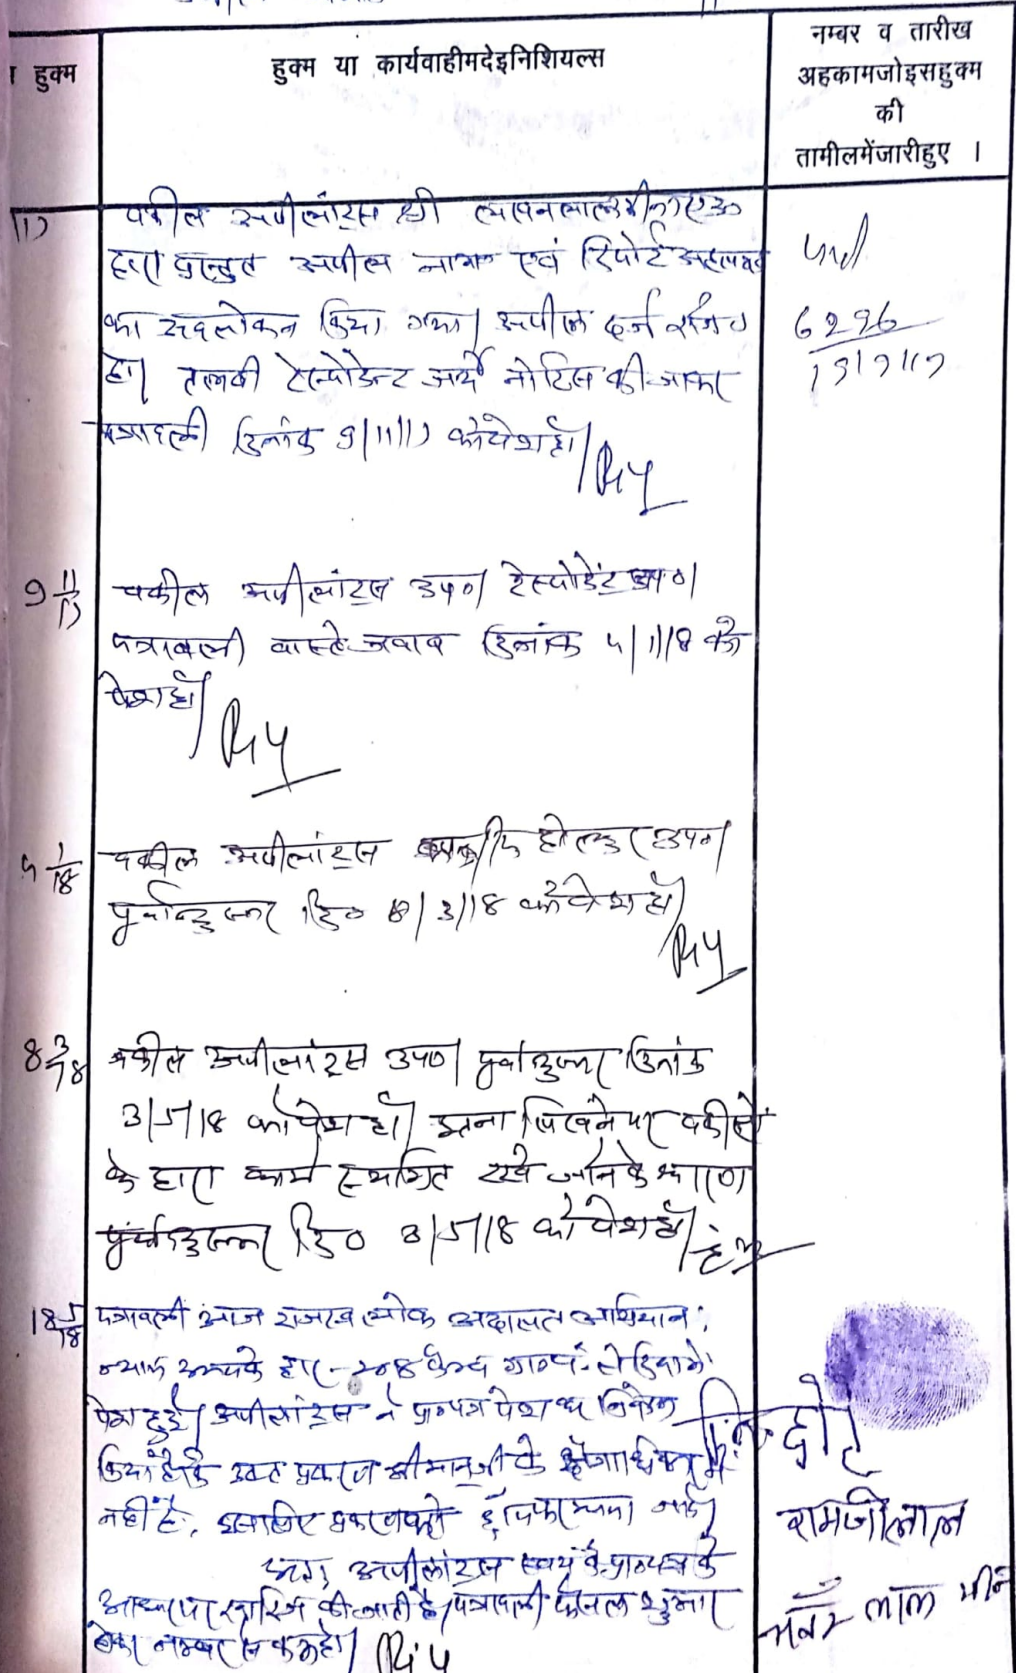 हुक्म
हुक्म या कार्यवाहीमदेइनिशियल्स
नम्बर व तारीख
अहकामजोइसहुक्म
की
तामीलमेंजारीहुए ।
वकील अपीलांट्स श्री
द्वारा प्रस्तुत अपील एवं रिपोर्ट
का अवलोकन किया गया। अपील दर्ज रजि०
हो। तलबी रेस्पोडेन्ट जर्ये नोटिस की जाकर
पत्रावली दिनांक 9/11/17 को पेश हो।
6296
9 11/17 वकील अपीलांट्स उप०। रेस्पोडेंट उप०।
पत्रावली वास्ते जवाब दिनांक 4/1/18 को
पेश हो।
4 1/18 वकील अपीलांट्स उप०।
पूर्वानुसार दि० 8/3/18 को पेश हो।
8 3/18 वकील अपीलांट्स उप०। पूर्वानुसार दिनांक
3/5/18 को पेश हो। इतना लिखने पर वकीलों
के द्वारा कार्य स्थगित रखे जाने के कारण
पूर्वानुसार दि० 3/5/18 को पेश हो।
18 5/18 पत्रावली आज राजस्व लोक अदालत अभियान:
न्याय आपके द्वार-2018
पेश हुई। अपीलांट्स ने प्रा०पत्र पेश कर निवेदन
किया है कि उक्त प्रकरण श्रीमानजी के क्षेत्राधिकार में
नहीं है, इसलिए प्रकरण को
अतः अपीलांट्स स्वयं के प्रा०पत्र के
आधार पर खारिज की जाती है। पत्रावली फैसल शुमार
होकर नम्बर से कम हो।
रामजीलाल
लाल